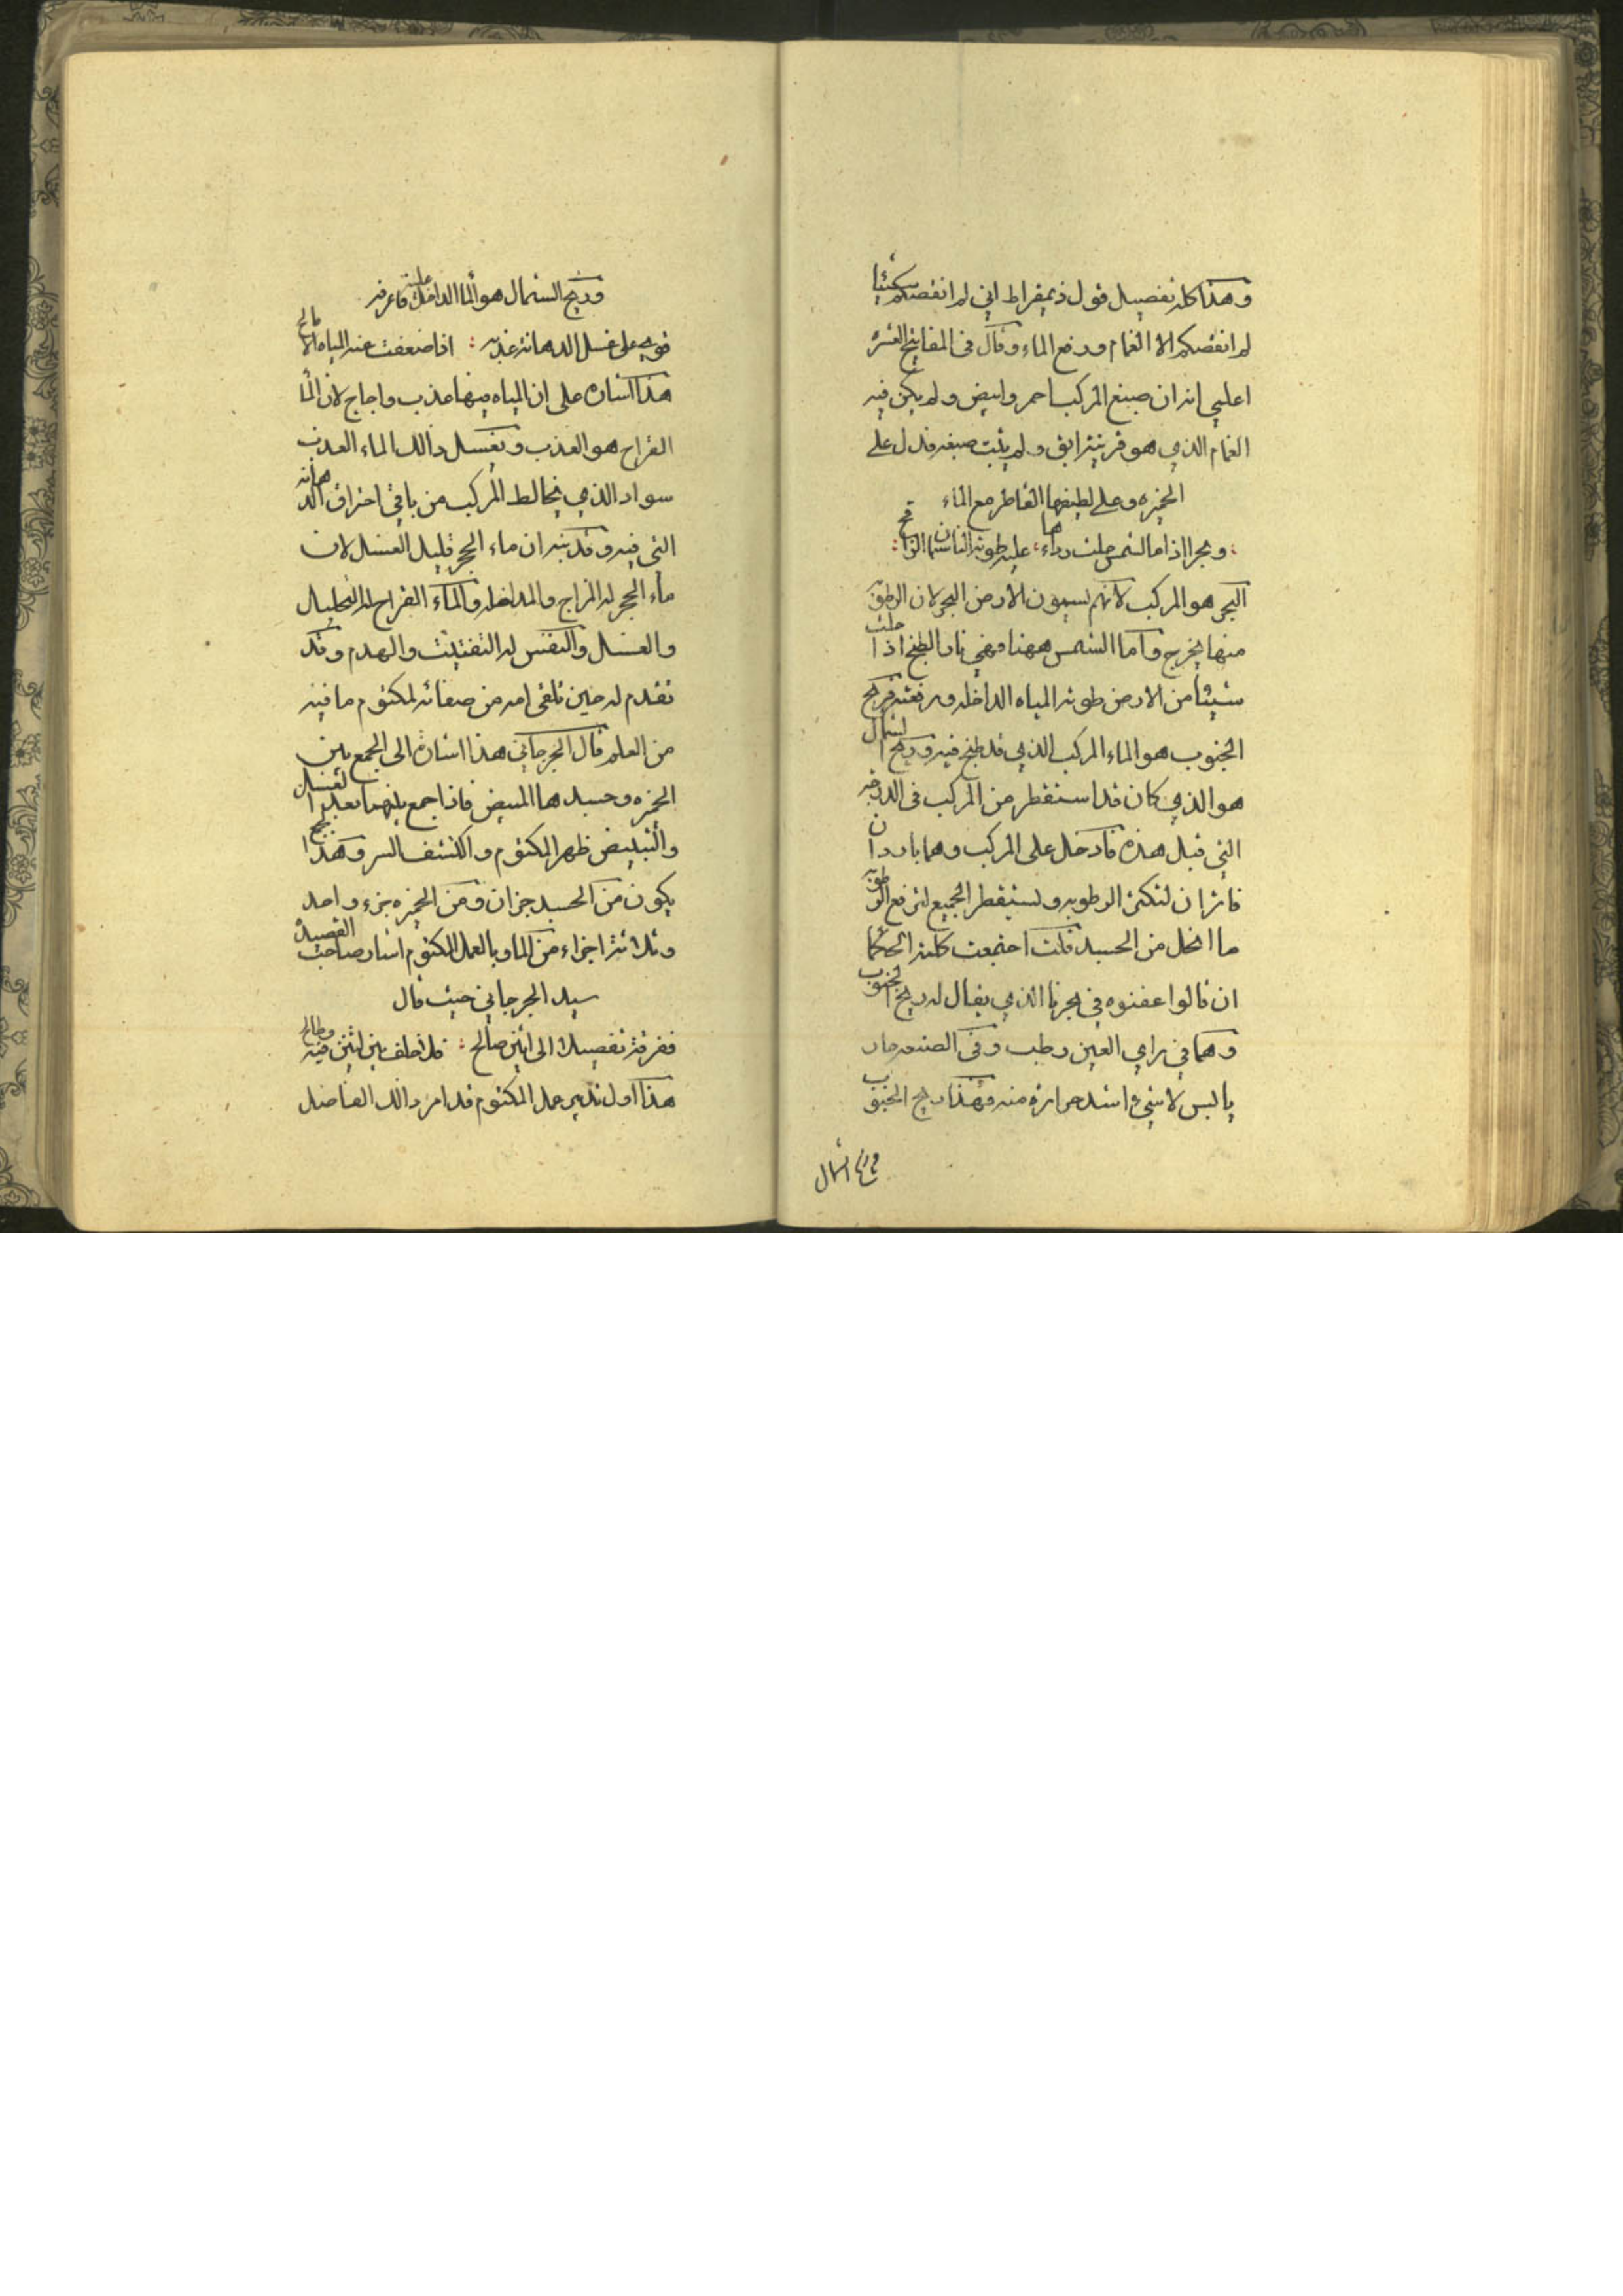 وهذا كله تفصيل قول ذيمقراط اني لم انقصكم شيئا
لم انقصكم الا الغمام ورفع الماء وقال في المفاتيح العشرة
اعلمي انه ان صبغ المركب احمر وابيض ولم يكن فيه
الغمام الذي هو قرينته ابق ولم يثبت صبغه فدل على
الخميره وعلى لطيفها القاطر مع الماء
وبحرا اذا ما الشمس حلت رداءها عليه طوته الناشتان اللواقح
البحر هو المركب لانهم يسمون الارض البحر لان الرطوبة
منها يخرج واما الشمس ههنا فهي نار الطبخ اذا حلت
شيئا من الارض طوته المياه الداخله ورفعته فريح
الجنوب هو الماء المركب الذي قد طبخ فيه وريح الشمال
هو الذي كان قد استقطر من المركب في الدرجه
التي قبل هذه فادخل على المركب وهما باردان
فاثر ان لتكثر الرطوبه وليستقطر الجميع لترفع الرطوبة
ما انحل من الجسد فلت اجتمعت كلمة الحكما
ان قالوا عفنوه في بحرنا الذي يقال له ريح الجنوب
وهما في راي العين رطب وفي الصنعه حار
يابس لا شيء اشد حرارة منه فهذا ريح الجنوب
وريح الشمال
وريح الشمال هو الما الداخل عليه فاعرفه
قويه على غسل الدهانة عذبه اذا ضعفت عنه المياه الامالح
هذا اشاره على ان المياه منها عذب واجاج لان الما
القراح هو العذب ويغسل ذالك الماء العذب
سواد الذي يخالط المركب من باقي احتراق الدهانه
التي فيه وقد بينه ان ماء الحجر قليل الغسل لان
ماء الحجر له المزاج والمداخله والماء القراح له التحليل
والغسل والنفس له التفتيت والهدم وقد
تقدم له حين تلقى امه من صفائه لمكتوم ما فيه
من العلم قال الجرجاني هذا اشارة الى الجمع بين
الخمره وجسدها المبيض فاذا جمع بينهما بعد الغسل
والتبييض ظهر المكتوم وانكشف السر وهذا الجمع
يكون من الجسد جزان ومن الخميره جزء واحد
وثلاثة اجزاء من الما وبالعمل المكتوم اشار صاحب القصيدة
سيد الجرجاني حيث قال
ففرقة تفصيلا الى ابن صالح فلا خلف بين اثنين فيه وطالح
هذا اول تدبير عمل المكتوم قد امر ذالك الفاضل